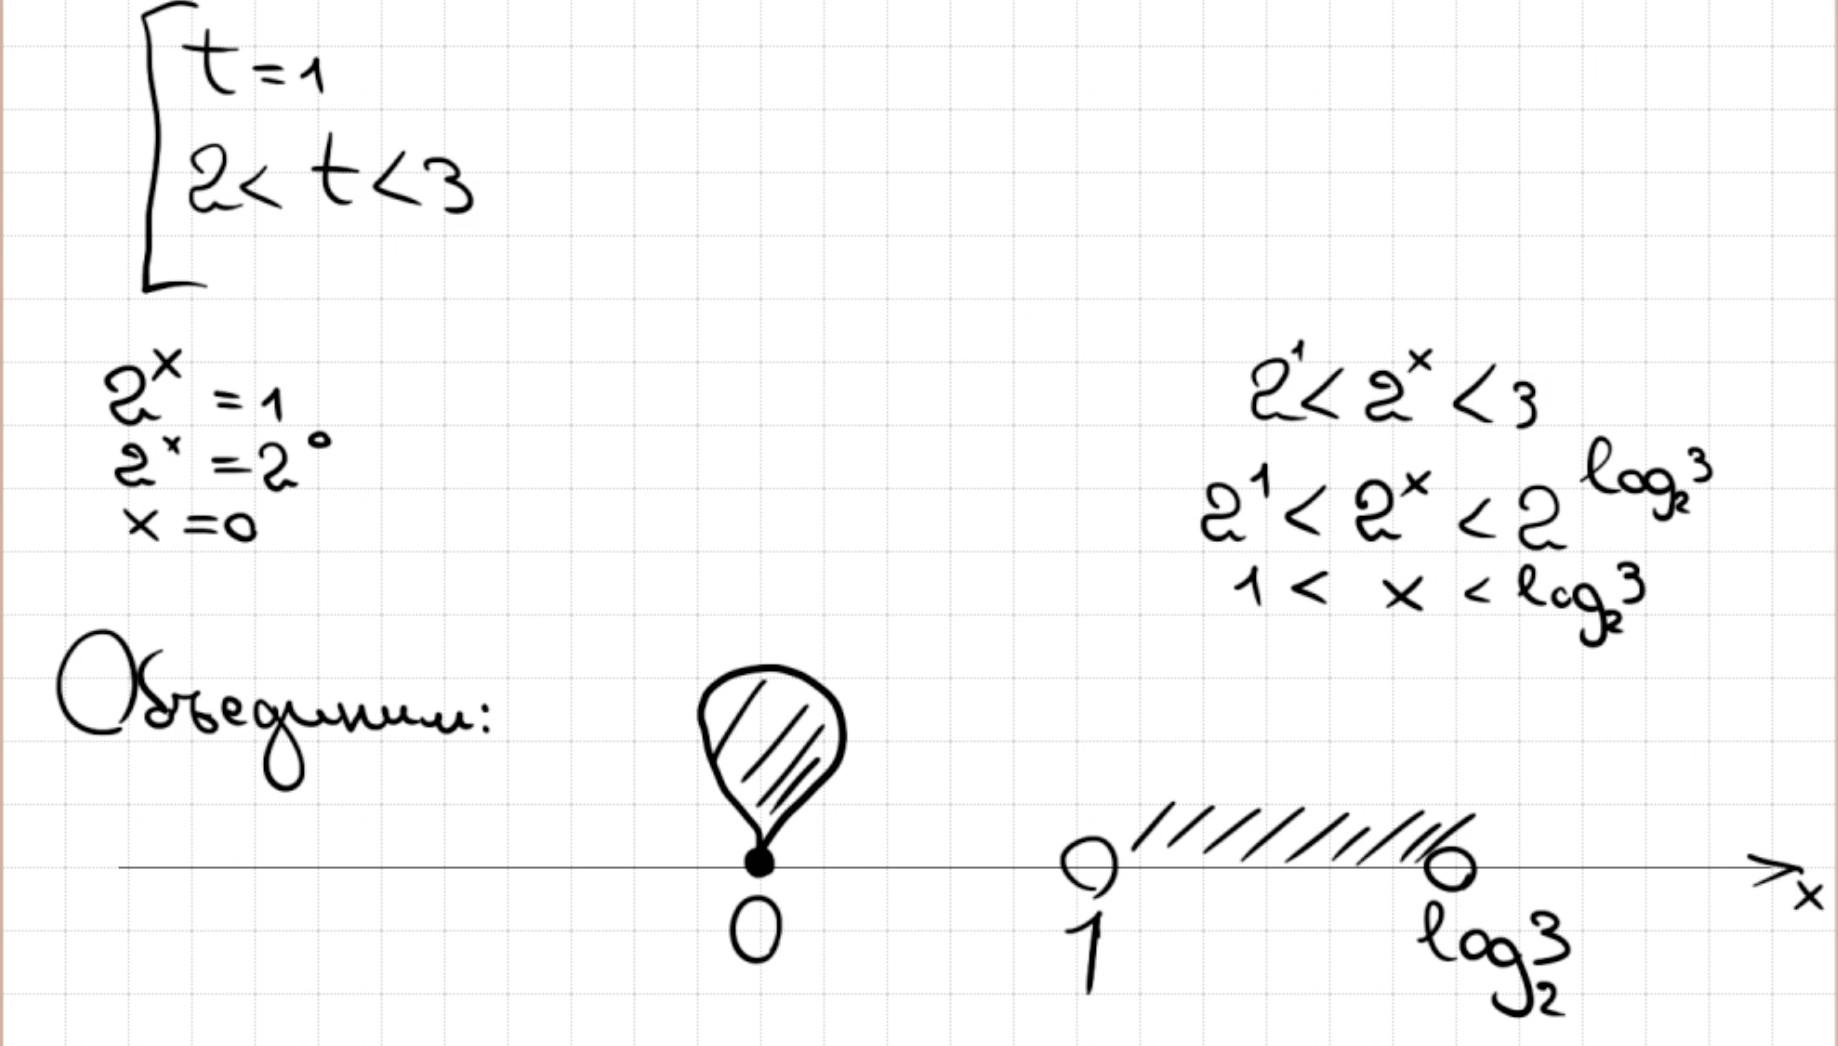 t = 1
2 < t < 3
2^x = 1
2^x = 2^0
x = 0
2^1 < 2^x < 3
2^1 < 2^x < 2^{log_2 3}
1 < x < log_2 3
Объединим:
0 1 log_2 3 x